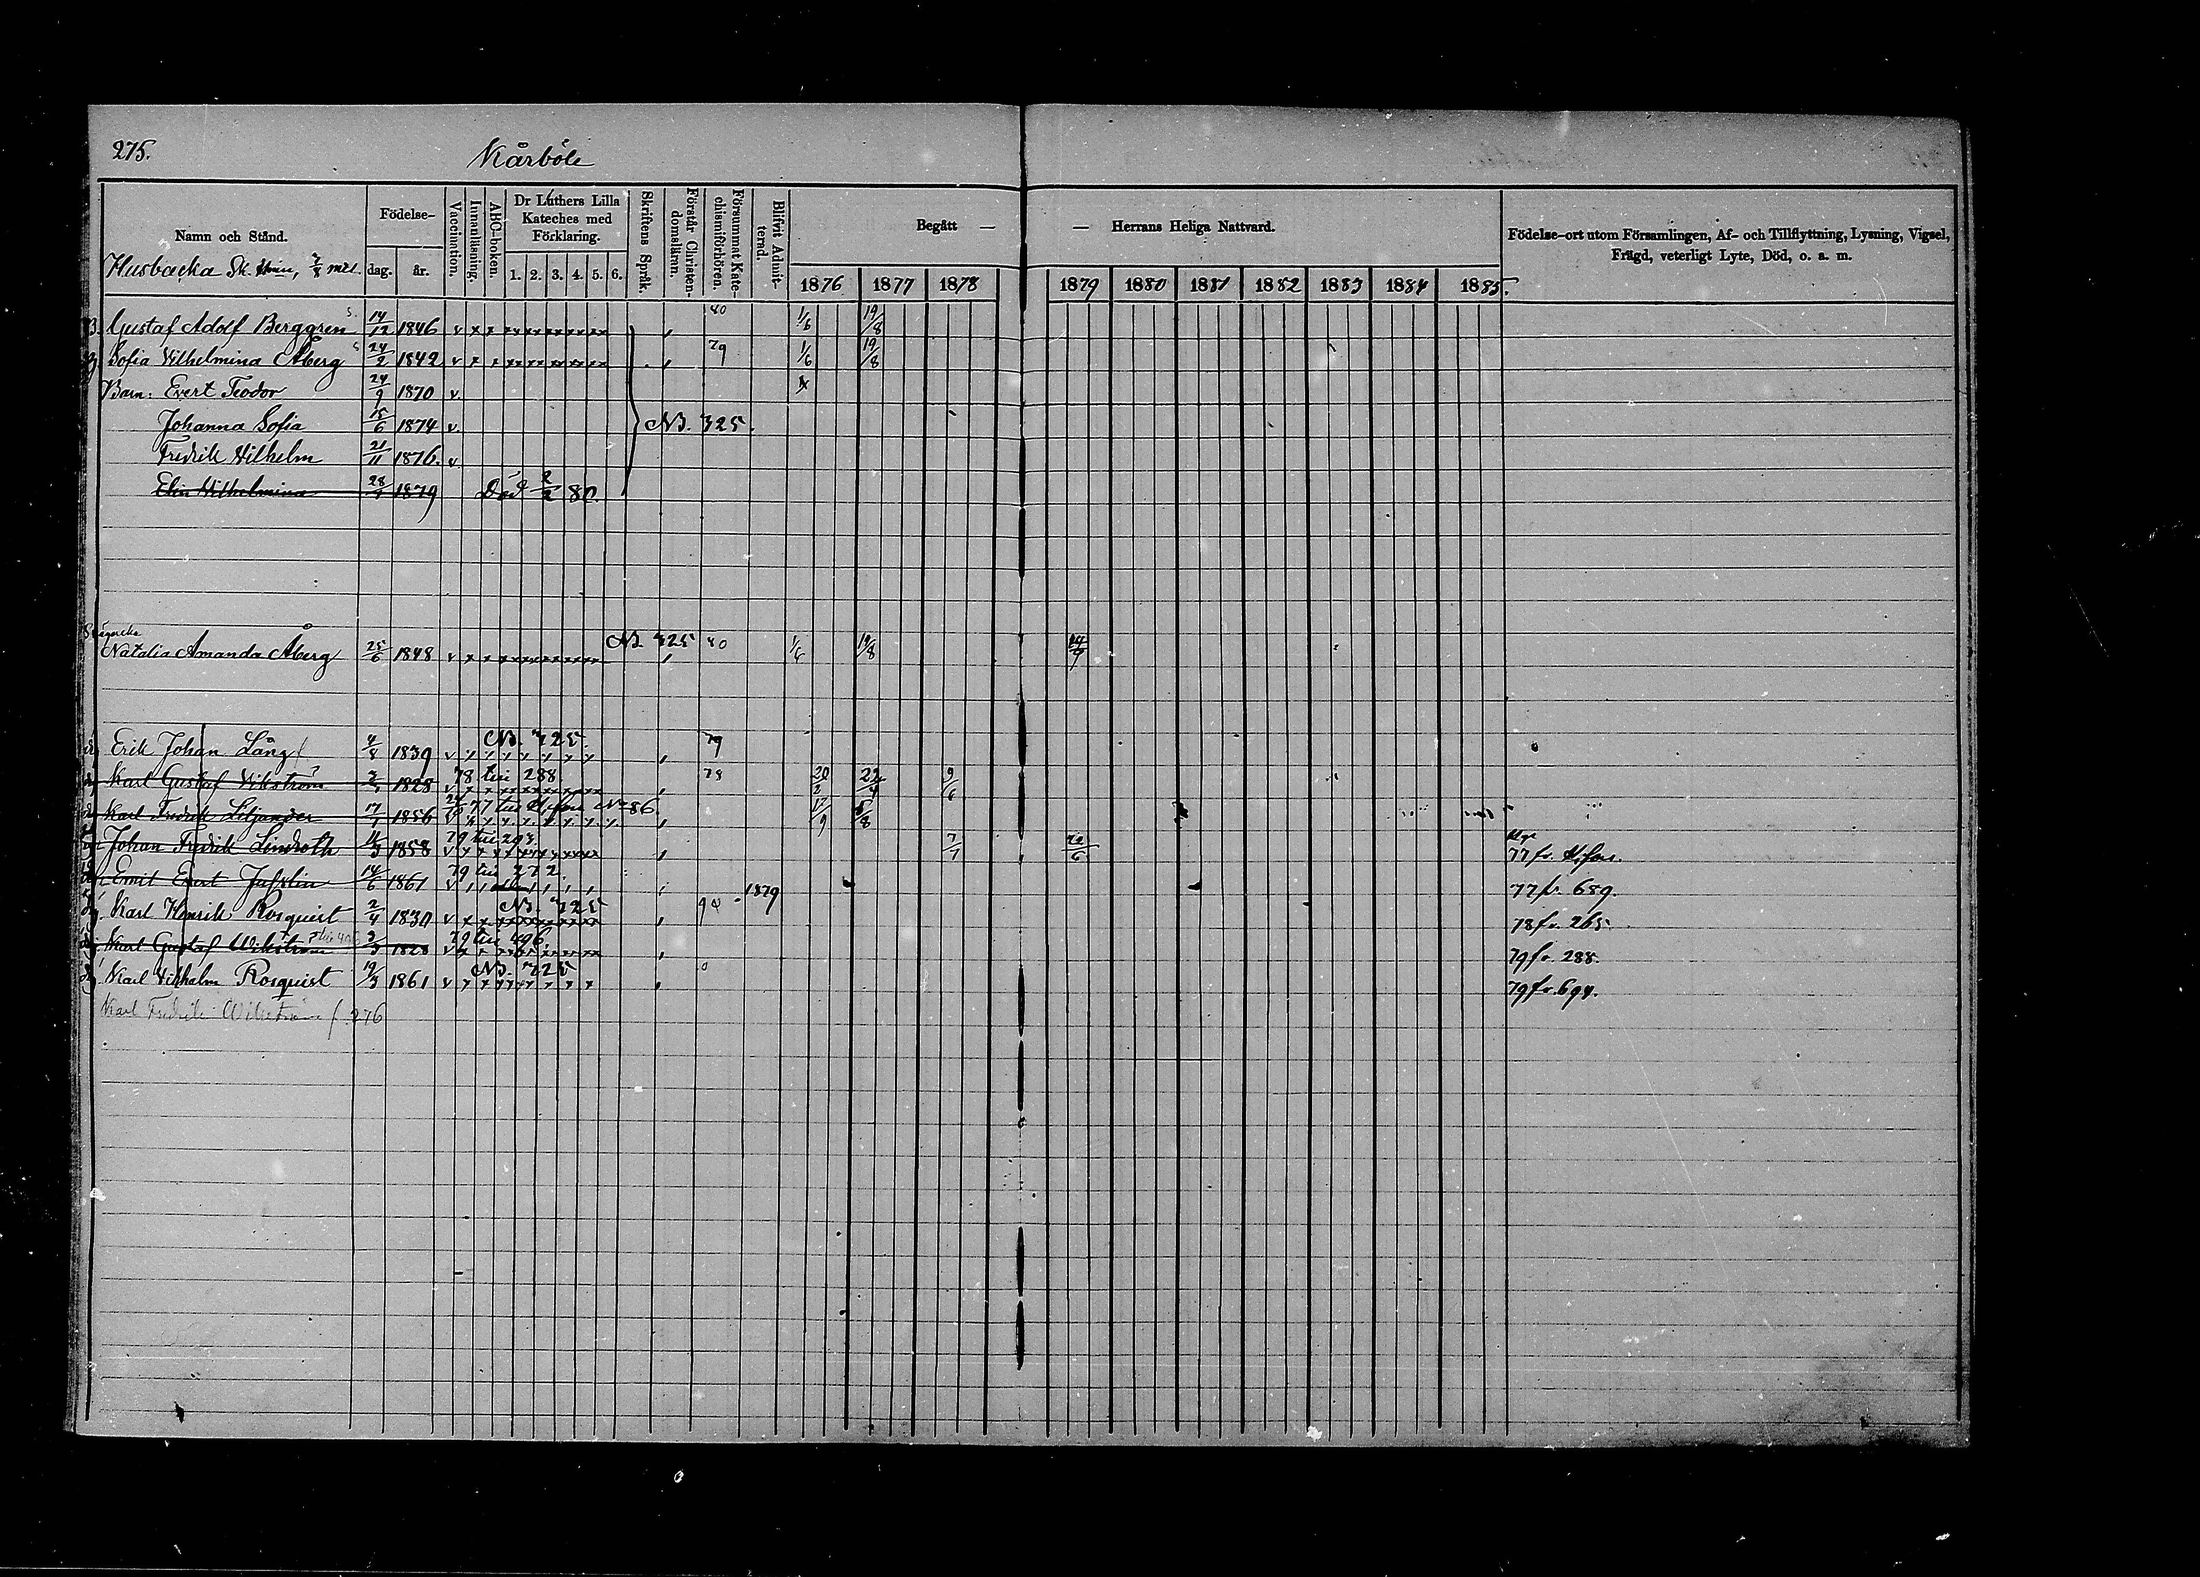 275.
Kårböle
Namn och Stånd.
Födelse-
dag.
år.
Vaccination.
Innanläsning.
ABC-boken.
Dr Luthers Lilla Kateches med Förklaring.
1. 2. 3. 4. 5. 6.
Skriftens Språk.
Förstår Christendomsläran.
Försummat Katechismiförhören.
Blifvit Admitterad.
Begått — — Herrans Heliga Nattvard.
1876 1877 1878 1879 1880 1881 1882 1883 1884 1885.
Födelse-ort utom Församlingen, Af- och Tillflyttning, Lysning, Vigsel,
Frägd, veterligt Lyte, Död, o. a. m.
Husbacka Sk.
Gustaf Adolf Berggren 14/12 1846 80 1/6 19/8
Sofia Vilhelmina Åberg 24/2 1842 79 1/6 19/8
Barn: Evert Teodor 24/9 1870 v
Johanna Sofia 15/6 1874 v NB. 325.
Fredrik Vilhelm 21/11 1876. v
Elin Vilhelmina 1879 Död 2/2 80.
Natalia Amanda Åberg 25/6 1848 NB. 325 80 19/8
Erik Johan Lång 1839 NB. 325. 79
Karl Gustaf Vikström 1828 78 till 288 78 22/4 9/6
Karl Fredrik Liljander 17/1 1856 77 No 86
Johan Fredrik Lindroth 1858 79 till 293 7/7 77 fr.
Emil Evert 14/6 1861 79 till 272. 1879 77 fr. 689.
Karl Henrik Rosquist 2/4 1830 NB. 325 78 fr. 265
Karl Gustaf Wikström 1828 79 till 496 79 fr. 288.
Karl Vilhelm Rosquist 19/3 1861 NB. 325 79 fr. 694.
Karl Fredrik Wikström f. 276